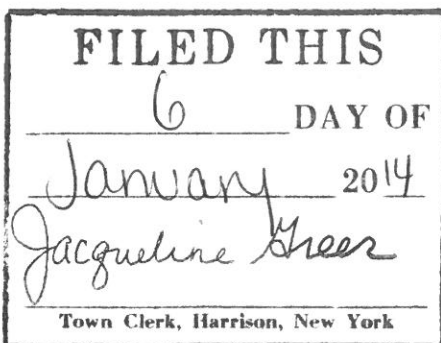 FILED THIS
6 DAY OF
January 2014
Jacqueline Greer
Town Clerk, Harrison, New York